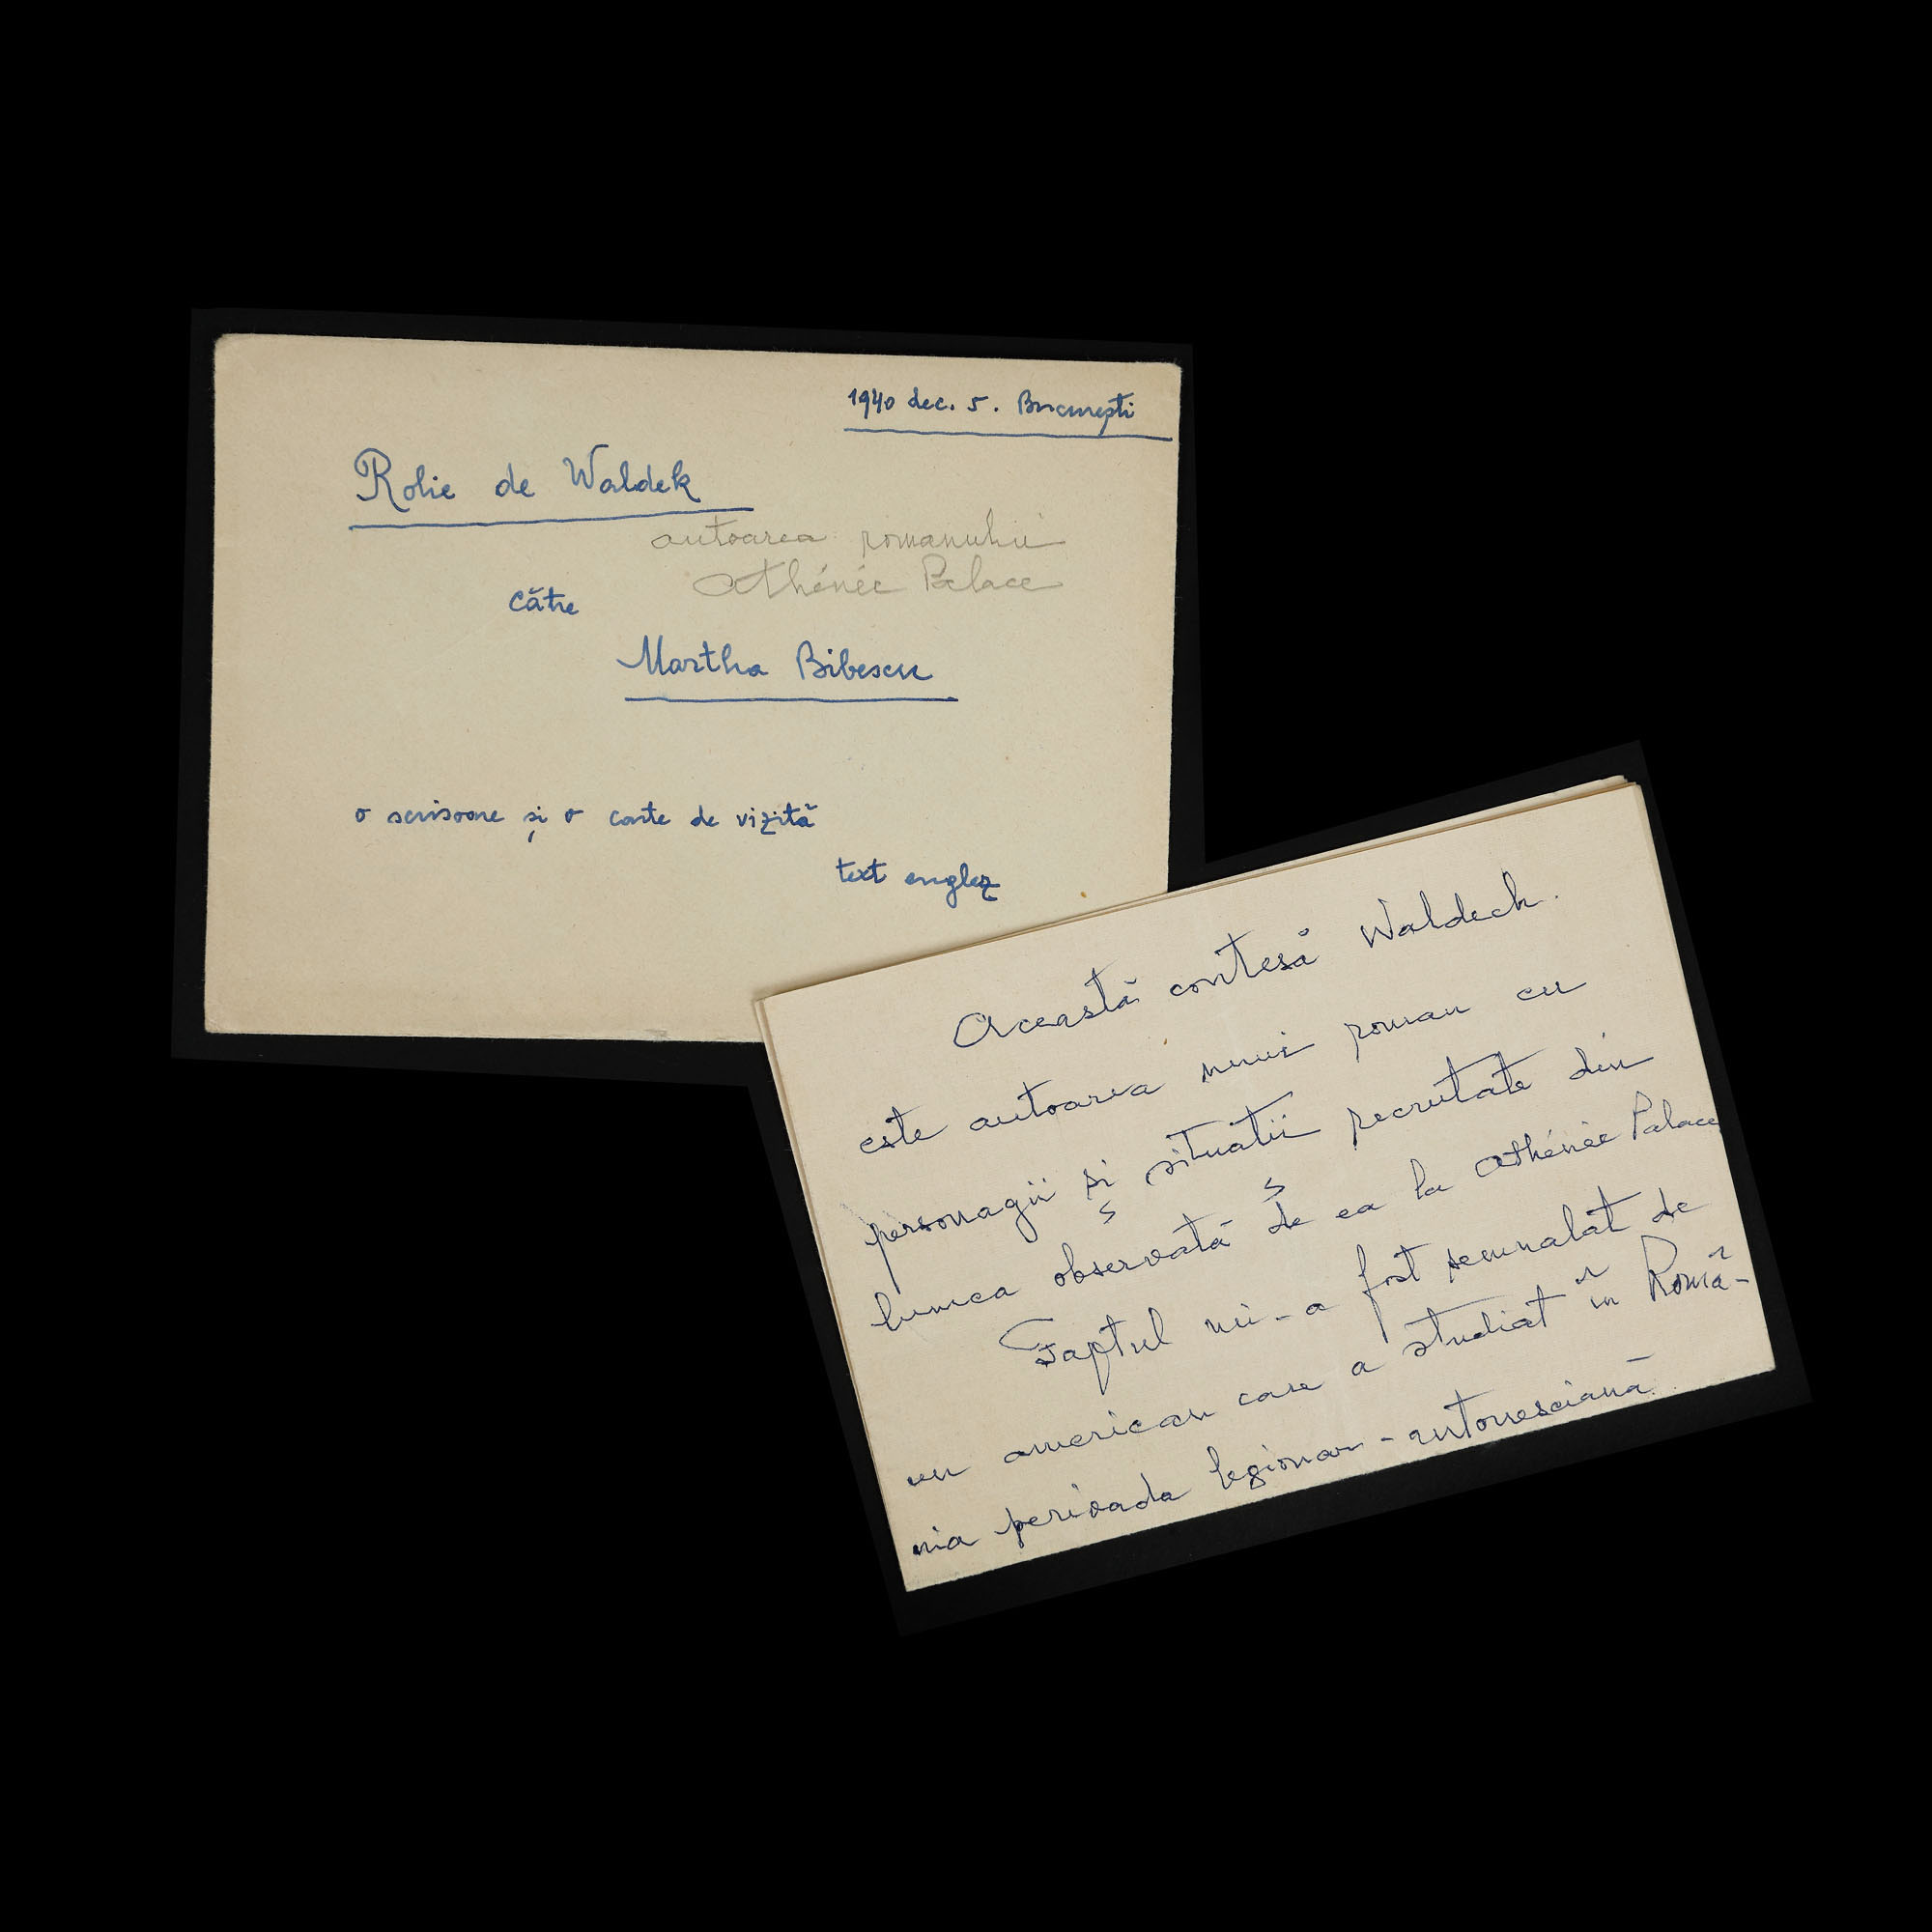 1940 dec. 5. București
Rolie de Waldek
autoarea romanului
Athénée Palace
către
Martha Bibescu
o scrisoare și o carte de vizită
text englez
Această contesă Waldeck.
este autoarea unui roman cu
personagii și situații recrutate din
lumea observată de ea la Athénée Palace
Faptul mi-a fost semnalat de
un american care a studiat în Româ-
nia perioada legionar-antonesciană.